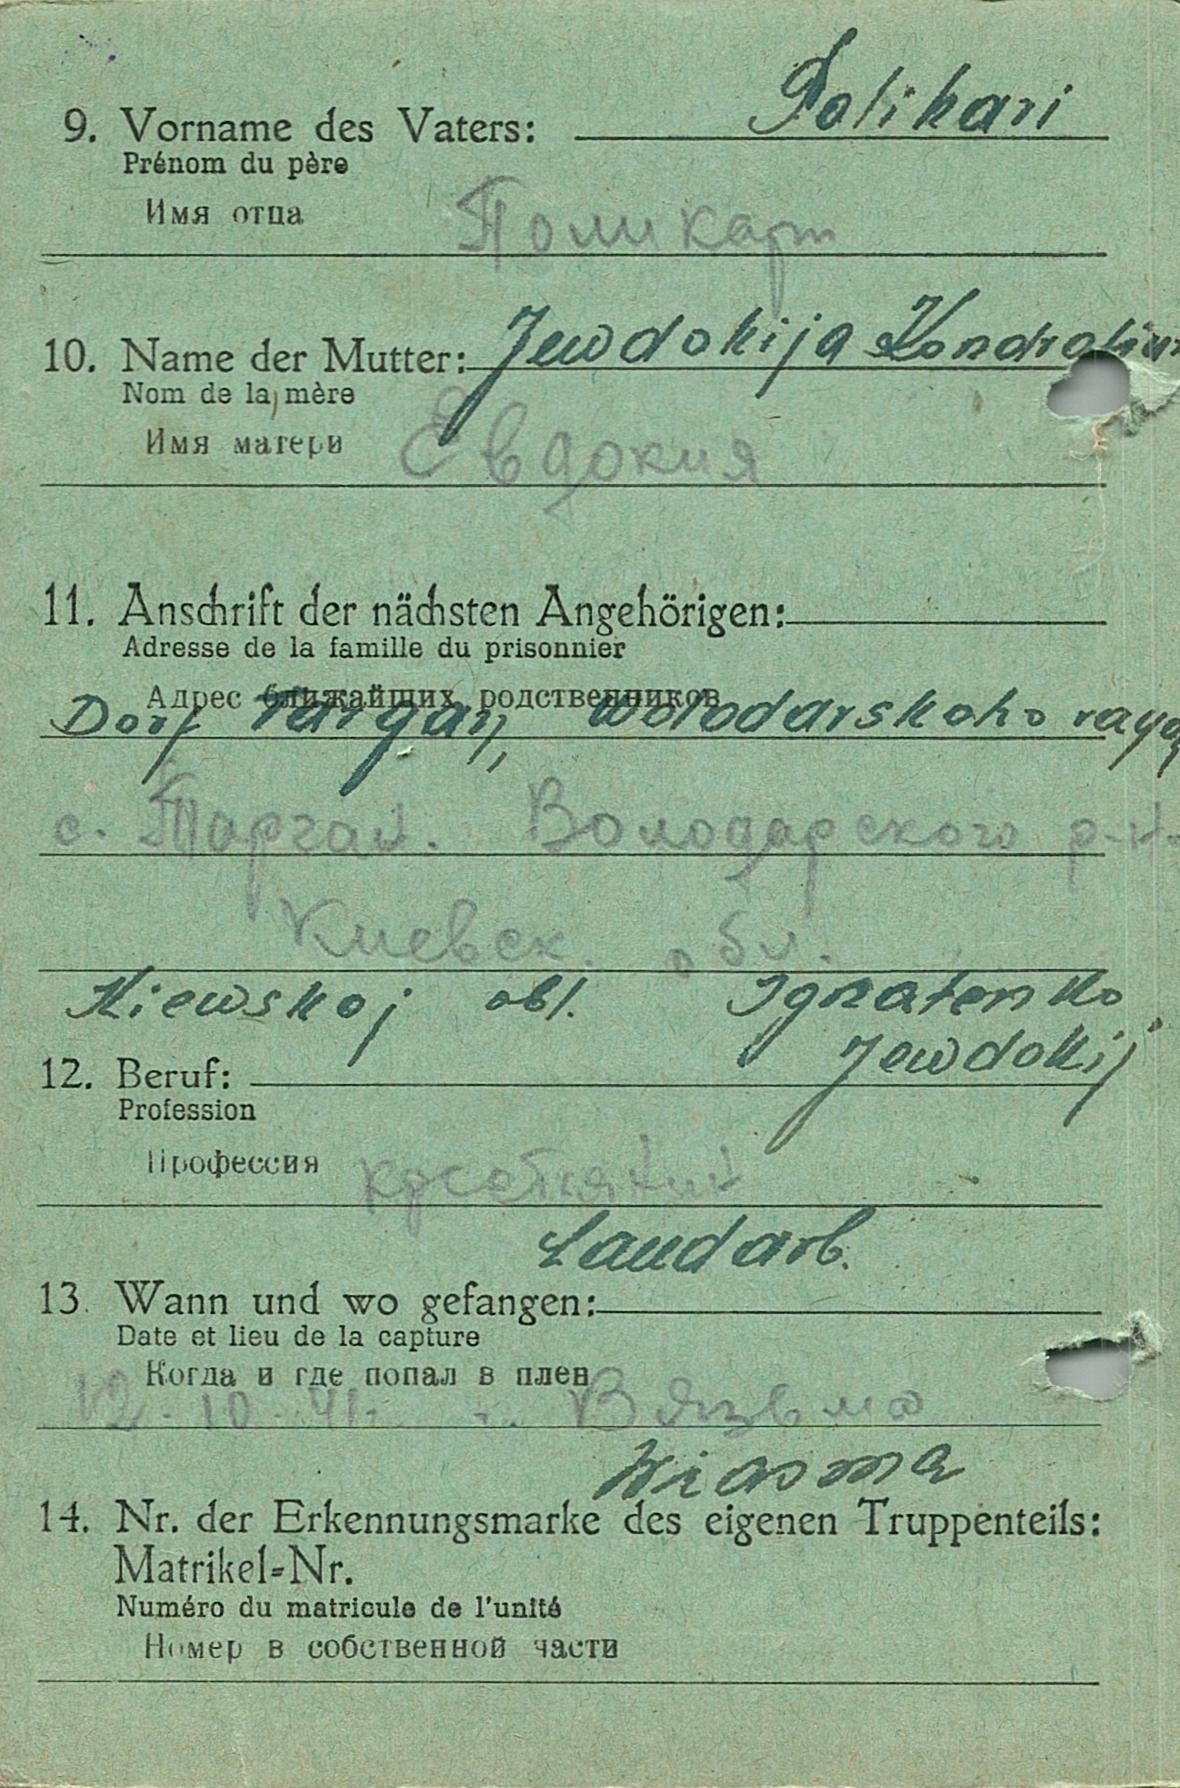 9. Vorname des Vaters: Polikari
Prénom du père
Имя отца Поликарп
10. Name der Mutter: Jewdokija
Nom de la mère
Имя матери Евдокия
11. Anschrift der nächsten Angehörigen:
Adresse de la famille du prisonnier
Адрес ближайших родственников
Dorf Targan, Wolodarskoho
с. Тарган. Володарского р-н
Киевск. обл.
Kiewskoj obl. Ignatenko
Jewdokij
12. Beruf:
Profession
Профессия
Landarb.
13. Wann und wo gefangen:
Date et lieu de la capture
Когда и где попал в плен
12.10.41г. г. Вязьма
Wiasma
14. Nr. der Erkennungsmarke des eigenen Truppenteils:
Matrikel-Nr.
Numéro du matricule de l'unité
Номер в собственной части